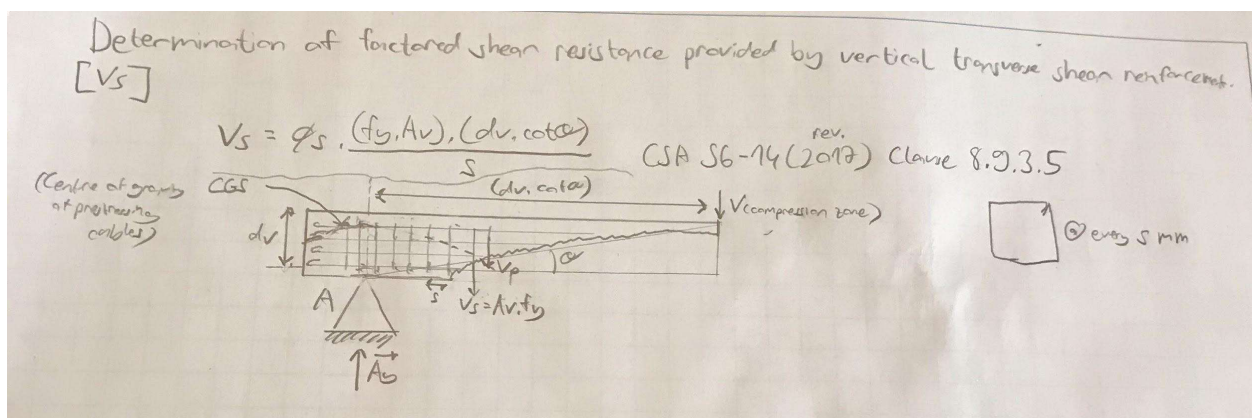 Determination of factored shear resistance provided by vertical transverse shear renforcement.
[Vs]
Vs = φs . (fy.Av).(dv.cotθ)
S
rev.
CSA S6-14(2017) Clause 8.9.3.5
(Centre of gravity
of prestressing
cables)
CGS
(dv.cotθ)
V(compression zone)
dv
θ
Vp
@ every S mm
A
S
Vs=Av.fy
Ay